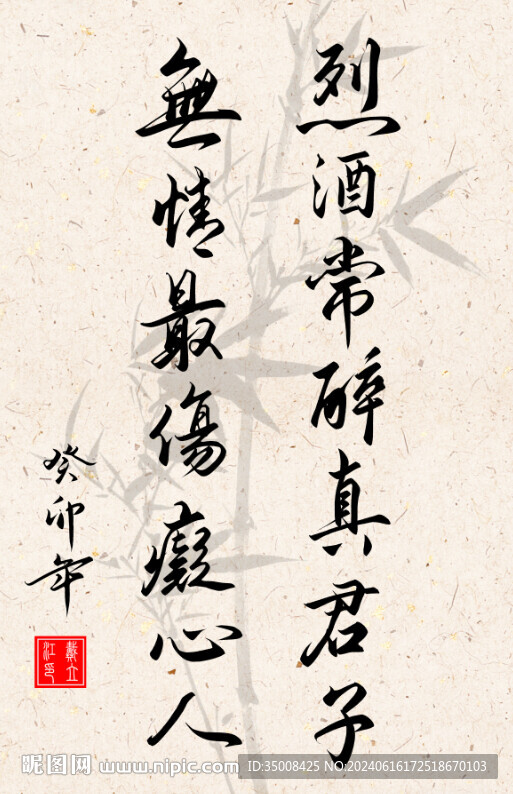 烈酒常醉真君子
無情最傷癡心人
癸卯年
戴立
江印
昵图网 www.nipic.com
ID:35008425 NO:20240616172518670103